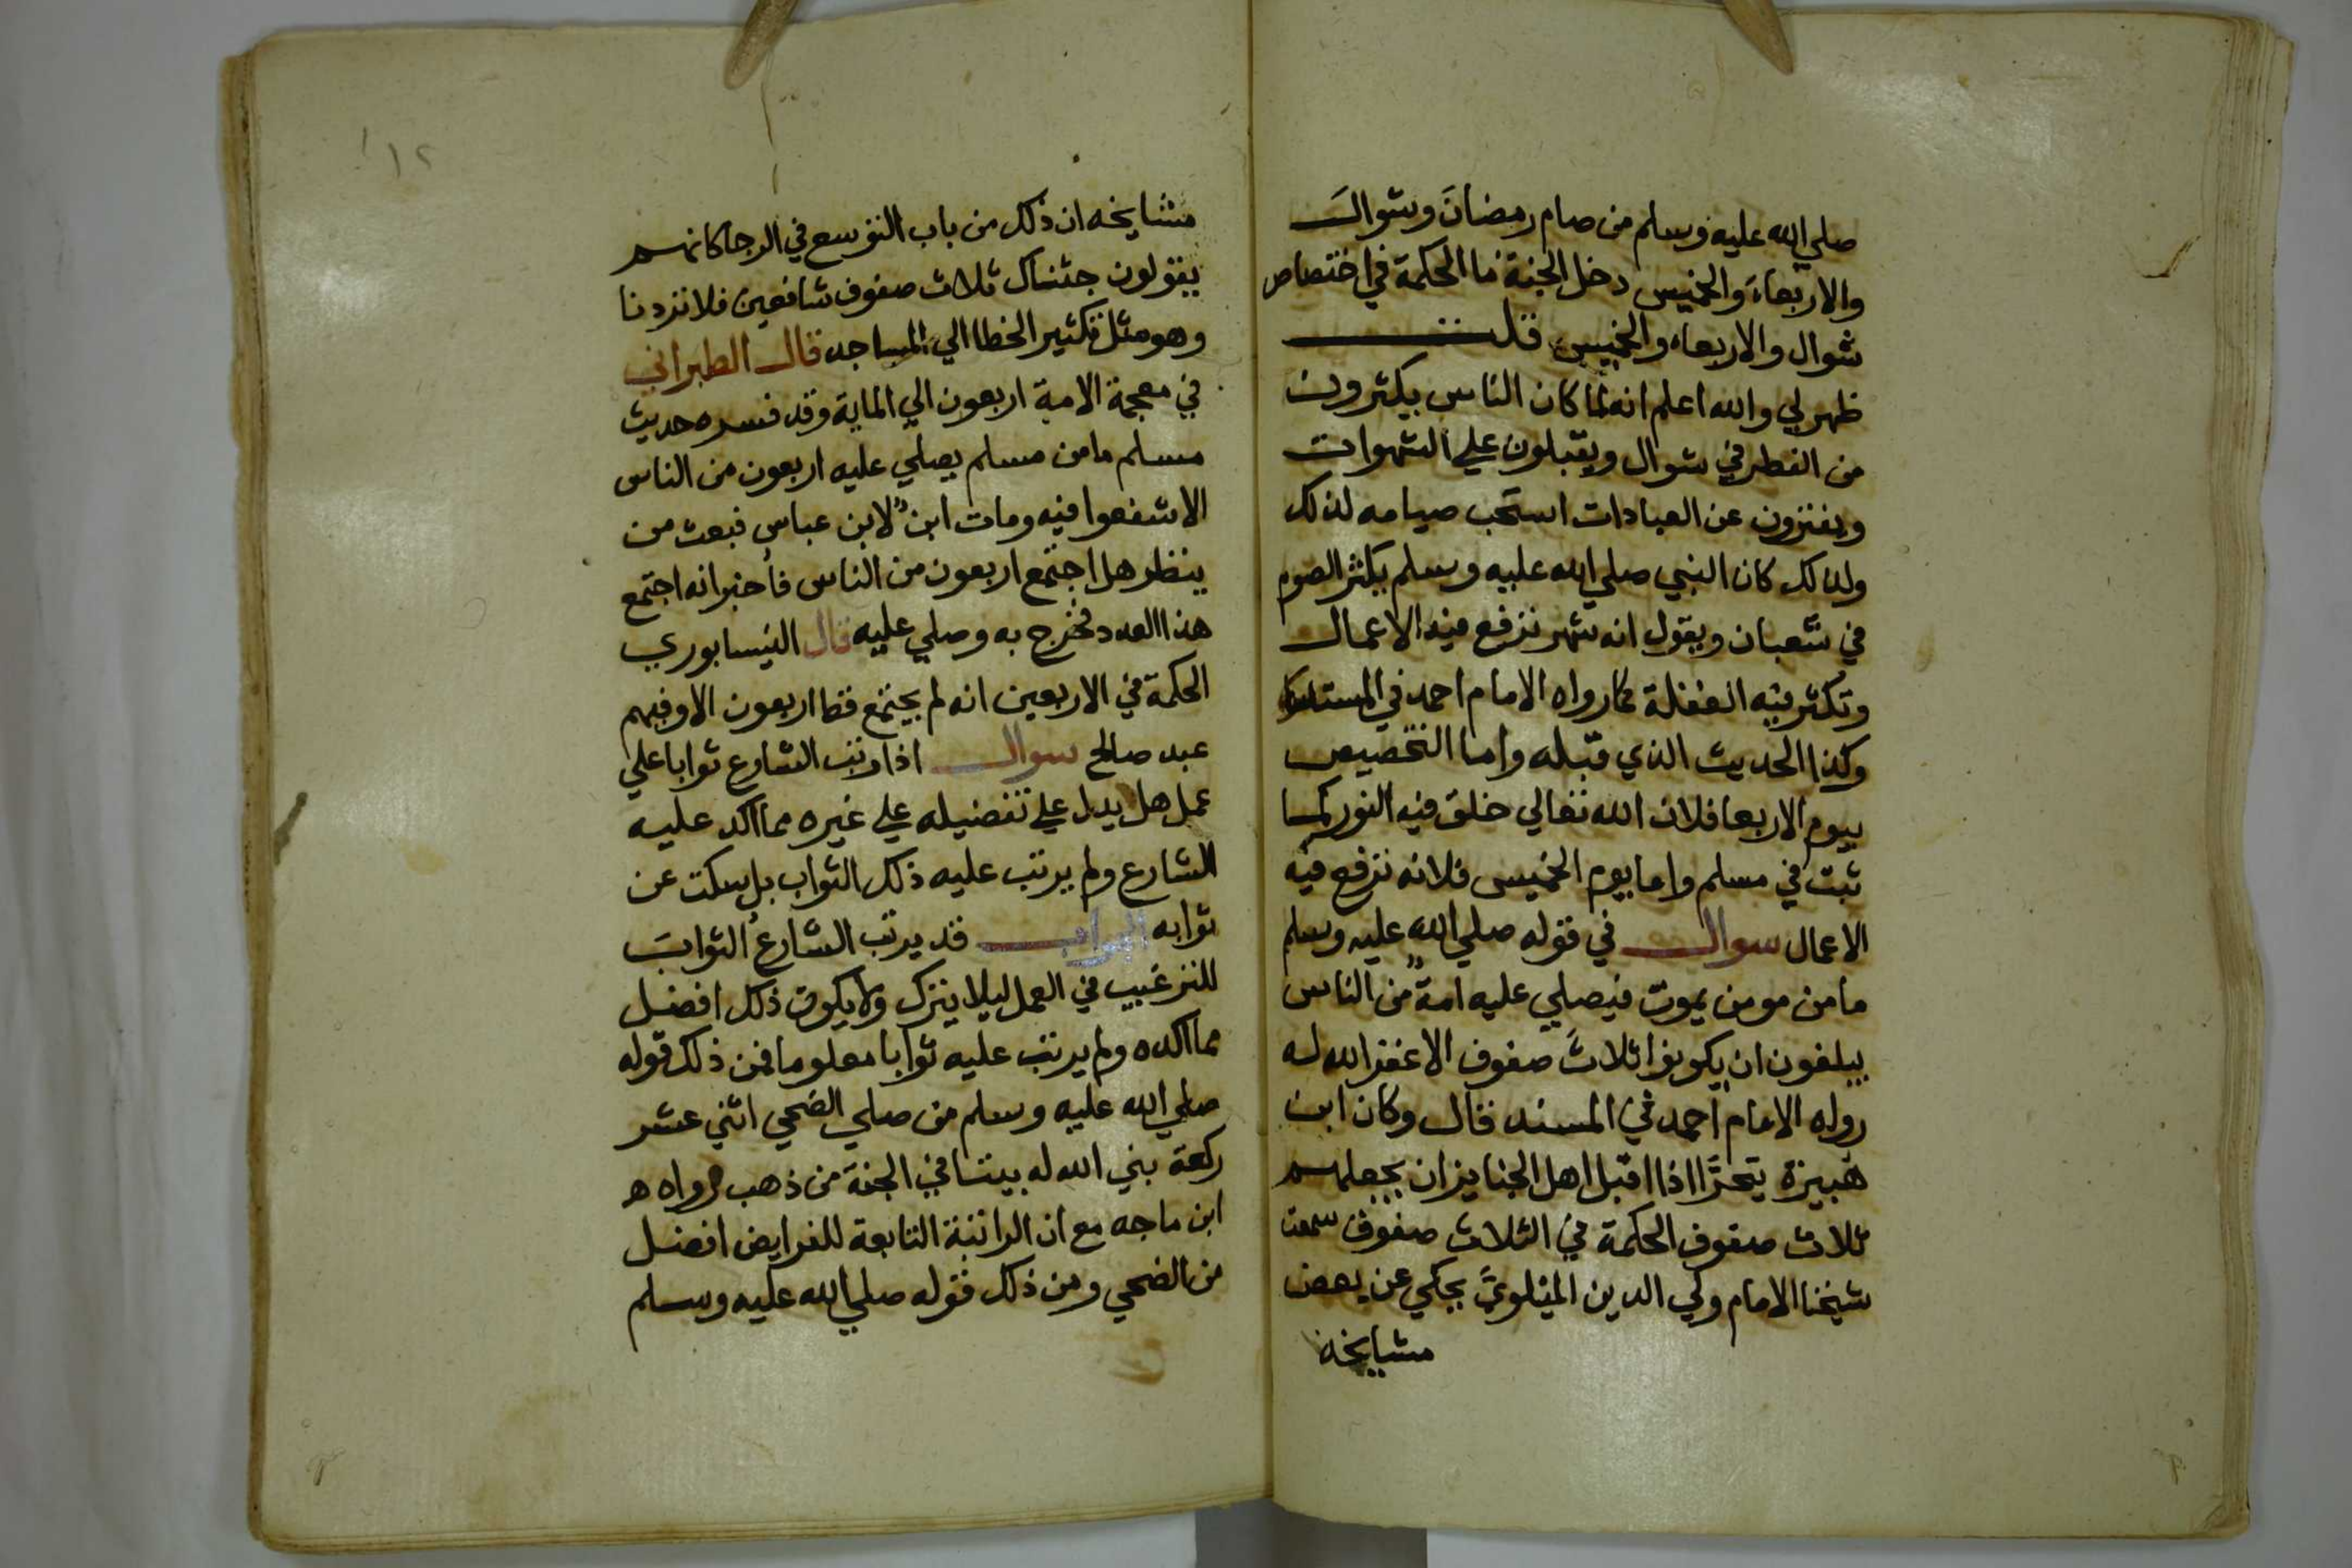 صلي الله عليه وسلم من صام رمضانَ وشوالَ
والاربعاءَ والخميس دخل الجنة فما الحكمة في اختصاص
شوال والاربعاء والخميس قلت
ظهر لي والله اعلم انه لما كان الناس يكثرون
من الفطر في شوال ويقبلون علي الشهوات
ويفترون عن العبادات استحب صيامه لذلك
ولذلك كان النبي صلي الله عليه وسلم يكثر الصوم
في شعبان ويقول انه شهر ترفع فيه الاعمال
وتكثر فيه الغفلة كما رواه الامام احمد في
وكذا الحديث الذي قبله واما التخصيص
بيوم الاربعا فلان الله تعالي خلق فيه النور كما
ثبت في مسلم واما يوم الخميس فلانه ترفع فيه
الاعمال سوال في قوله صلي الله عليه وسلم
ما من مومن يموت فيصلي عليه امةٌ من الناس
يبلغون ان يكونوا ثلاثَ صفوف الا غفر الله له
رواه الامام احمد في المسند قال وكان ابن
هبيرة يتحرَّا اذا اقبل اهل الجنايز ان يجعلهم
ثلاث صفوف الحكمة في الثلاث صفوف سمعت
شيخنا الامام ولي الدين الميلويَّ يحكي عن بعض
مشايخه
١٢
مشايخه ان ذلك من باب التوسع في الرجا كانهم
يقولون جئناك ثلاث صفوف شافعين فلا تردنا
وهو مثل تكثير الخطا الي المساجد قال الطبراني
في معجمة الامة اربعون الي الماية وقد فسره حديث
مسلم ما من مسلم يصلي عليه اربعون من الناس
الا شفعوا فيه ومات ابنٌ لابن عباس فبعث من
ينظر هل اجتمع اربعون من الناس فأخبر انه اجتمع
هذا العدد فخرج به وصلي عليه قال النيسابوري
الحكمة في الاربعين انه لم يجتمع قط اربعون الا وفيهم
عبد صالح سوال اذا رتب الشارع ثوابا علي
عمل هل يدل علي تفضيله علي غيره مما اكد عليه
الشارع ولم يرتب عليه ذلك الثواب بل سكت عن
ثوابه الجواب قد يرتب الشارعُ الثوابَ
للترغيب في العمل ليلا يترك ولا يكون ذلك افضل
مما اكده ولم يرتب عليه ثوابا معلوما فمن ذلك قوله
صلي الله عليه وسلم من صلي الضحي اثني عشر
ركعة بني الله له بيتا في الجنة من ذهب رواه ه
ابن ماجه مع ان الراتبة التابعة للفرايض افضل
من الضحي ومن ذلك قوله صلي الله عليه وسلم